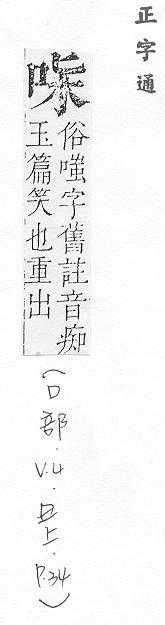 正字通
俗嗤字舊註音痴
玉篇笑也重出
(口部．V.4．丑上．P.34)